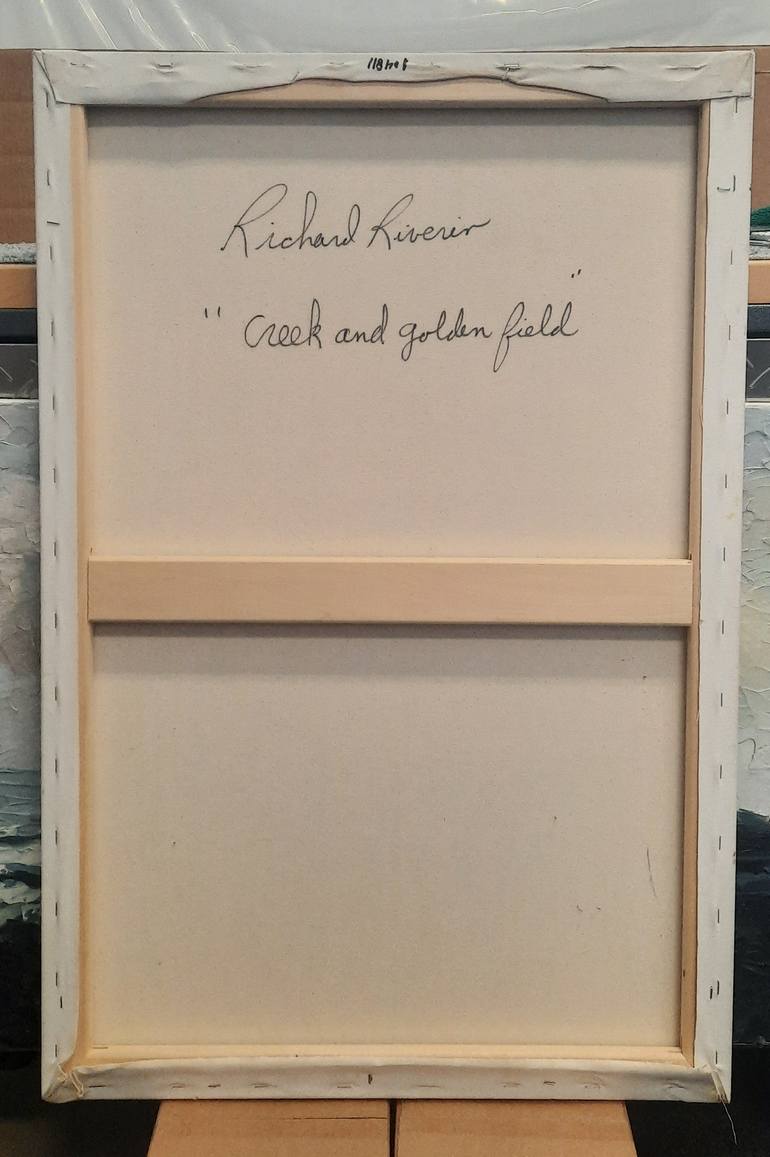 Richard Riverin
" Creek and golden field "